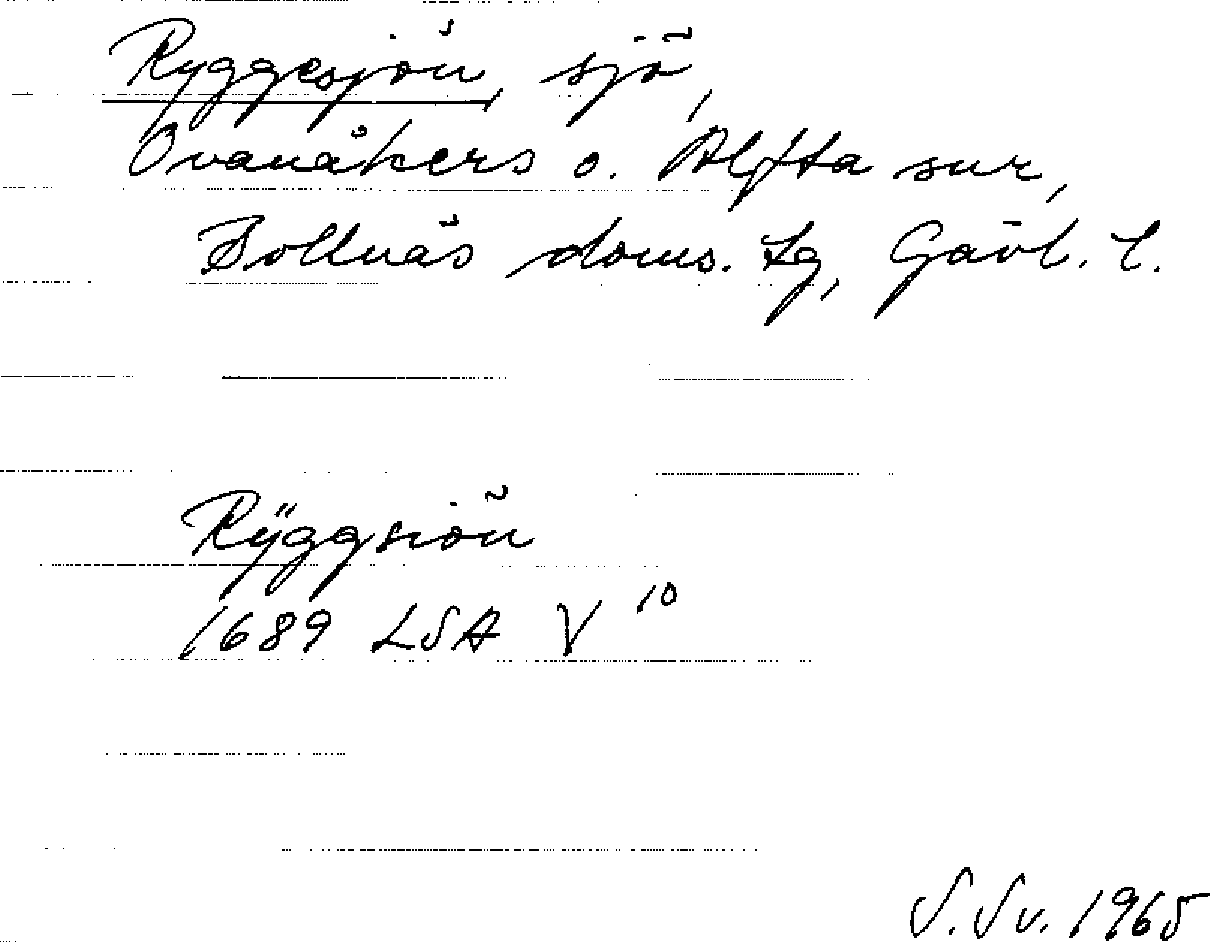 Ryggesjön, sjö,
Ovanåkers o. Alfta snr,
Bollnäs doms. tg, Gävl. l.
Rÿggsiön
1689 LSA V 10
S. Sv. 1965